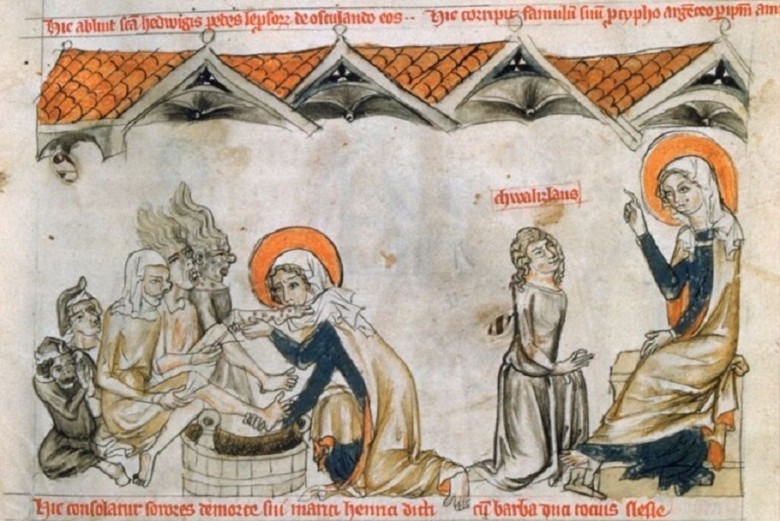 Hic abluit sca hedwigis pedes leprosor de osculando eos .. Hic corripit famulu suu p cypho argenteo
chwalizlaus
Hic consolatur sorores de morte sui mariti henrici dicti cu barba ducis tocius slesie